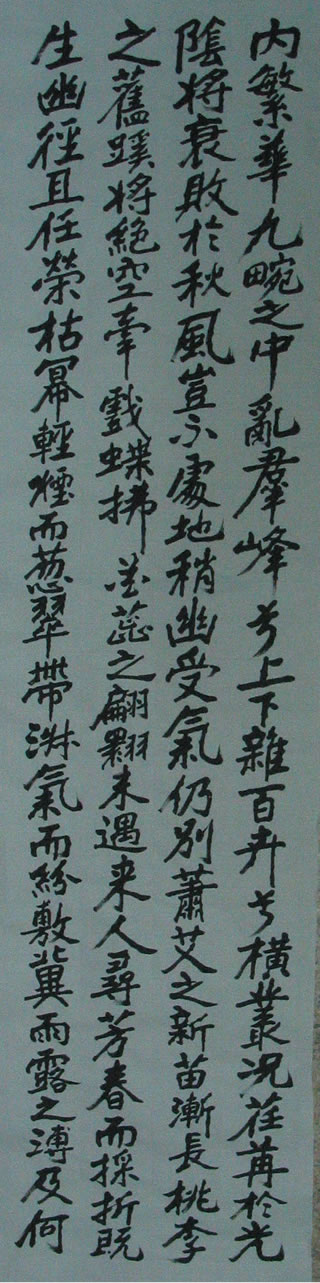 内繁華九畹之中亂羣峰兮上下雜百卉兮橫叢況荏苒於光
陰將衰敗於秋風豈不處地稍幽受氣仍别蕭艾之新苗漸長桃李
之舊蹊將絕空牽戲蝶拂花蕋之翩翾未遇来人尋芳春而採折既
生幽徑且任榮枯冪輕煙而葱翠帶淑氣而紛敷冀雨露之溥及何